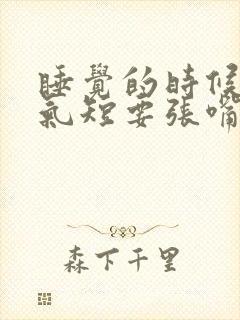 睡覺的時候
氣短要張嘴
森下千里